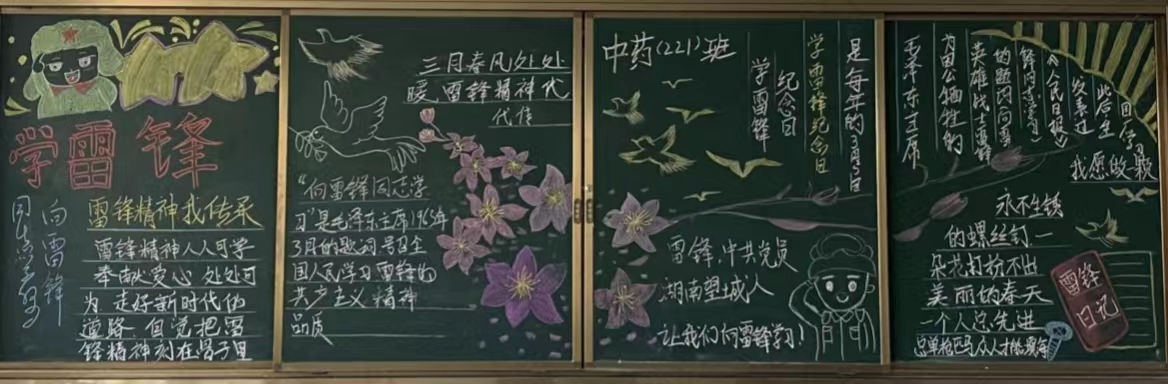 学雷锋
向雷锋
同志学习
雷锋精神我传承
雷锋精神人人可学
奉献爱心处处可
为 走好新时代的
道路 自觉把雷
锋精神刻在骨子里
三月春风处处
暖 雷锋精神代
代传
"向雷锋同志学
习"是毛泽东主席1963年
3月的题词号召全
国人民学习雷锋的
共产主义精神
品质
中药(221)班
学雷锋
纪念日
学雷锋纪念日
是每年的3月5日
雷锋,中共党员
湖南望城人
让我们向雷锋学习!
毛泽东主席
为因公牺牲的
英雄战士雷锋
的题词向雷
锋同志学习
《人民日报》
发表过
此后生
我愿做一颗
永不生锈
的螺丝钉一
朵花打扮不出
美丽的春天
一个人总先进
总单枪匹马众人才能
雷锋
日记